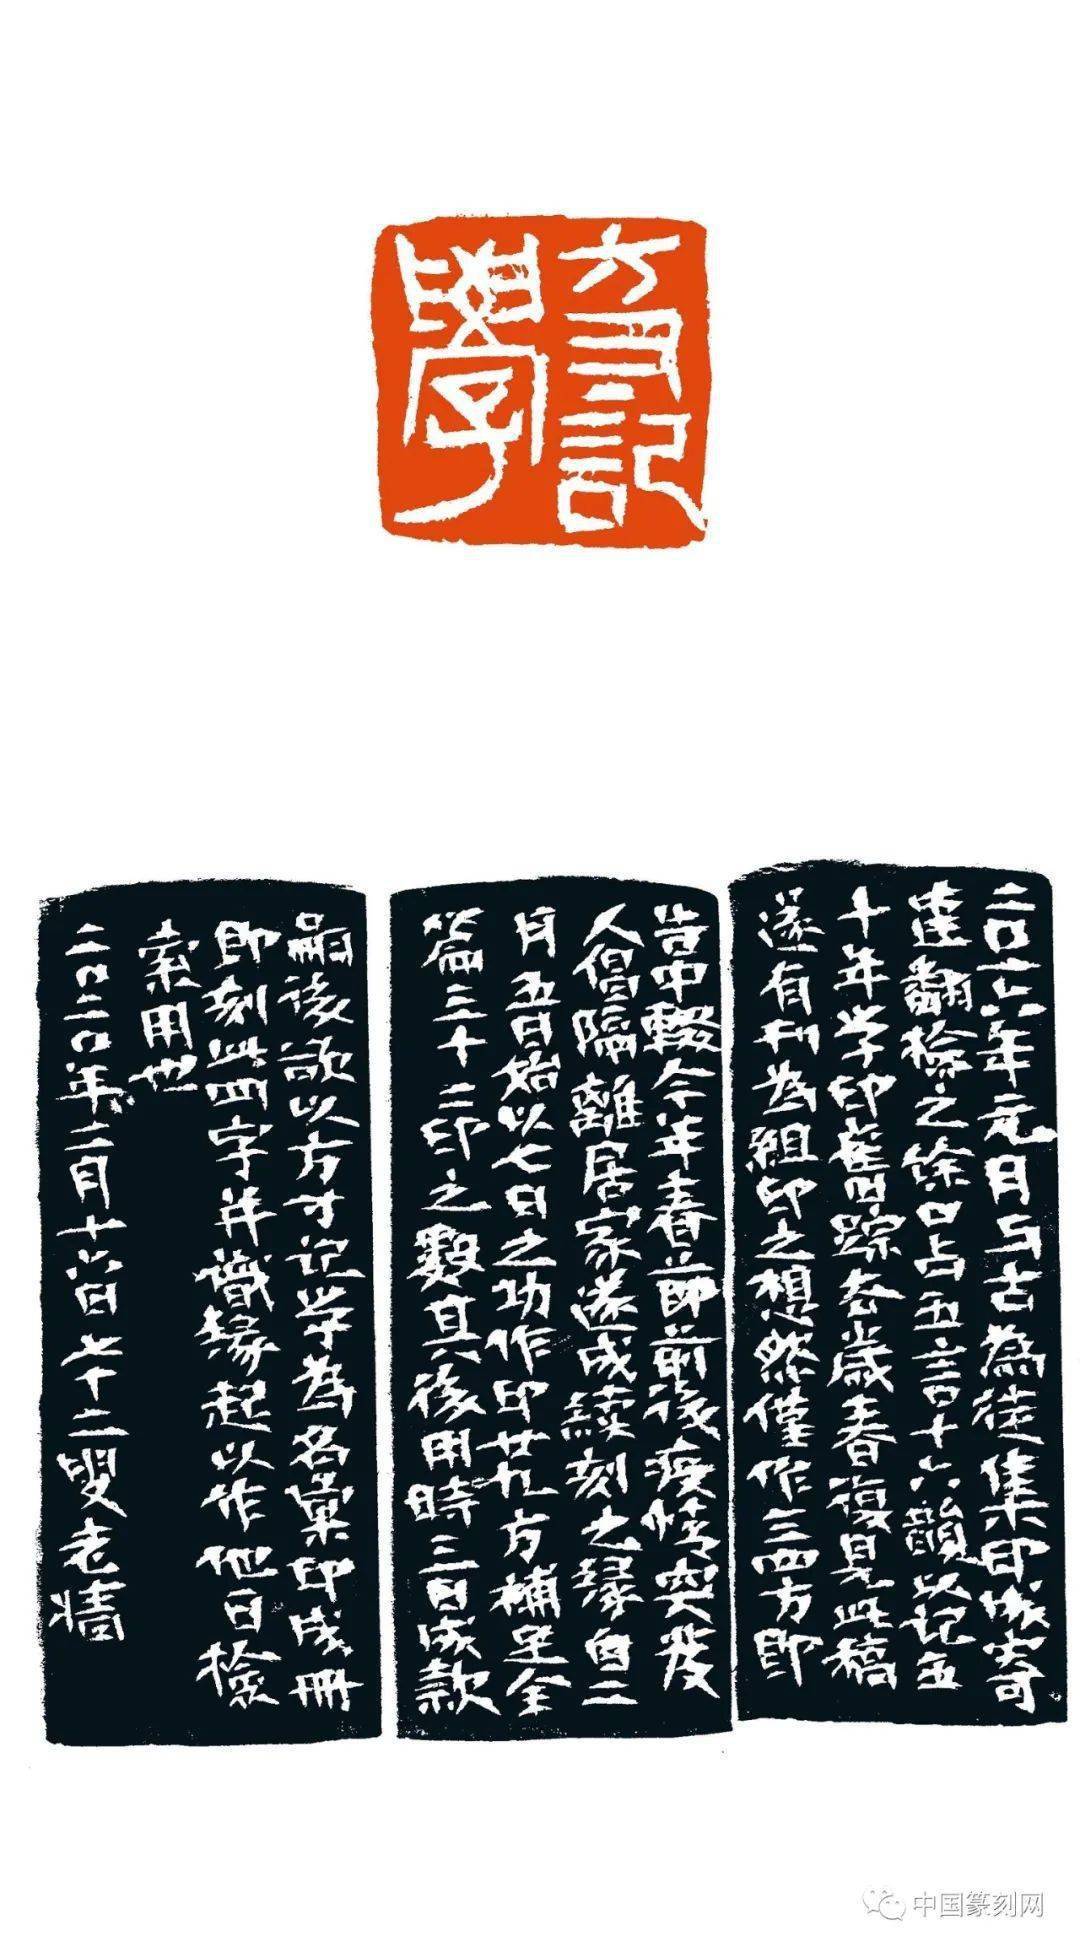 方寸記
學
二〇一六年元月与古為徒集印成寄
達翻檢之餘口占五言十六韻以记五
十年学印旧踪去歲春復見此稿
遂有刊為組印之想然僅作三四方即
告中輟今年春节前後疫情突发
人倡隔離居家遂成續刻之缘自二
月五日始以七日之功作印廿九方補足全
篇三十二印之數其後用時三日成款
嗣後欲以方寸记学為名彙印成冊
即刻此四字并識缘起以作他日檢
索用也
二〇二〇年二月十六日七十二叟老墙
中国篆刻网